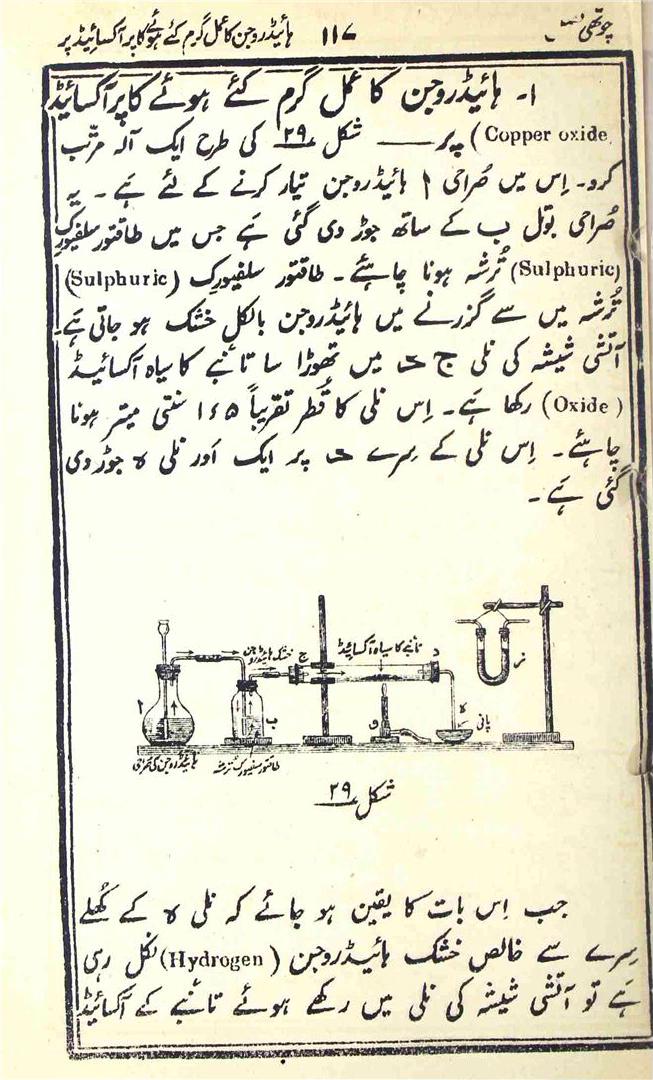 چوتھی فصل ۱۱۷ ہائیڈروجن کا عمل گرم کئے ہوئے کاپر آکسائیڈ پر
۱۔ ہائیڈروجن کا عمل گرم کئے ہوئے کاپر آکسائیڈ
(Copper oxide) پر ——— شکل ۲۹ کی طرح ایک آلہ مرتّب
کرو۔ اِس میں صُراحی ا ہائیڈروجن تیار کرنے کے لئے ہَے۔ یہ
صُراحی بوتل ب کے ساتھ جوڑ دی گئی ہَے جس میں طاقتور سلفیورک
(Sulphuric) تُرشہ ہونا چاہئے۔ طاقتور سلفیورِک (Sulphuric)
تُرشہ میں سے گزرنے میں ہائیڈروجن بالکل خشک ہو جاتی ہَے۔
آتشی شیشہ کی نلی ج د میں تھوڑا سا تانبے کا سیاہ آکسائیڈ
(Oxide) رکھا ہَے۔ اِس نلی کا قُطر تقریباً ۱ء۵ سنتی میتر ہونا
چاہئے۔ اِس نلی کے سِرے د پر ایک اَور نلی ہ جوڑ دی
گئی ہَے۔
تانبے کا سیاہ آکسائیڈ
خشک ہائیڈروجن
ا ب ج د ہ و ز
پانی
ہائیڈروجن کی صراحی
طاقتور سلفیورک ترشہ
شکل ۲۹
جب اِس بات کا یقین ہو جائے کہ نلی ہ کے کُھلے
سِرے سے خالص خشک ہائیڈروجن (Hydrogen) نکل رہی
ہَے تو آتشی شیشہ کی نلی میں رکھے ہوئے تانبے کے آکسائیڈ